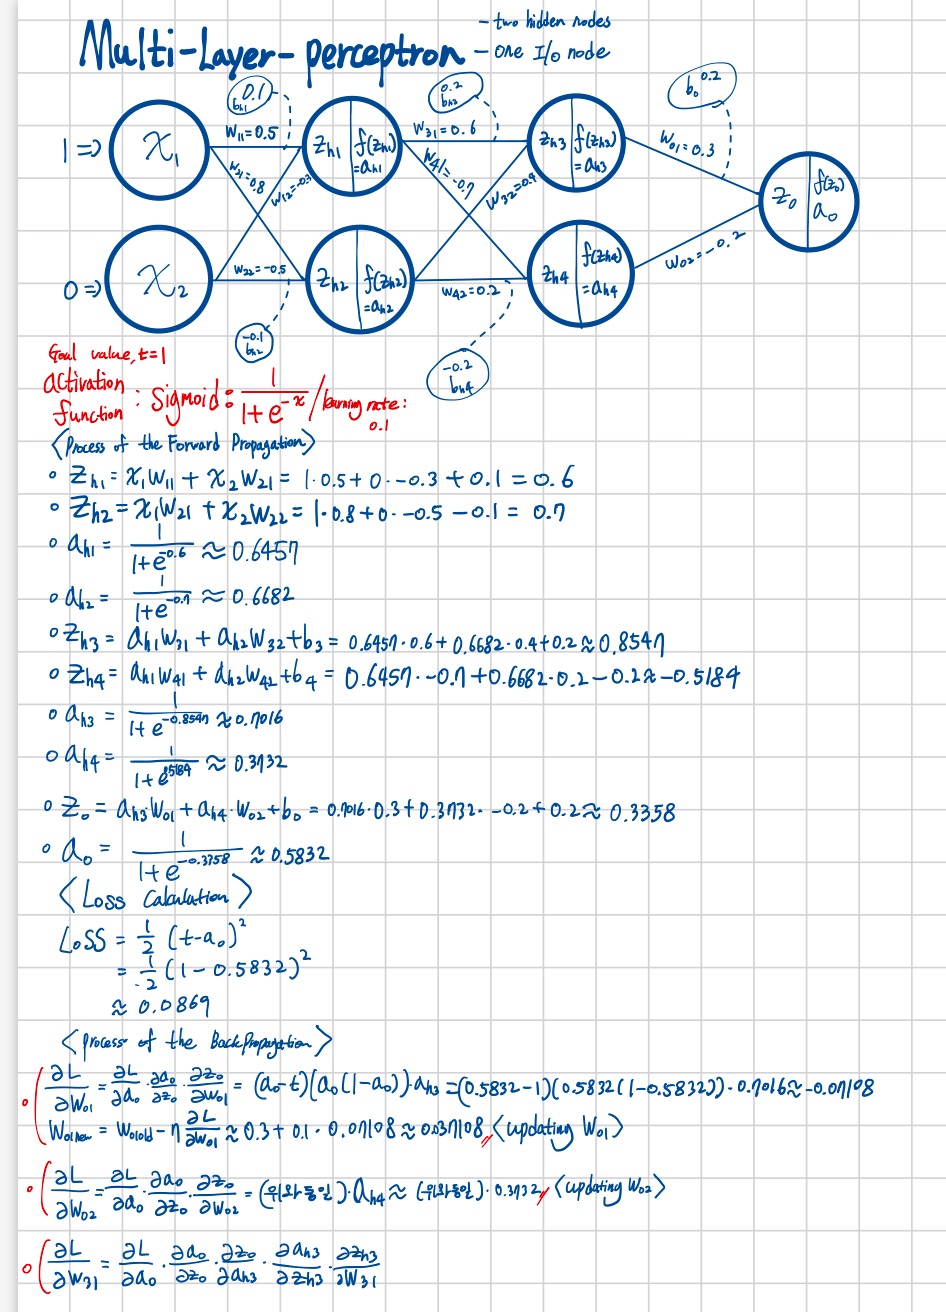 Multi-Layer-perceptron
- two hidden nodes
- one I/o node
0.1
b_h1
0.2
b_h2
b_o 0.2
1 =>
x_1
w_11=0.5
w_21=0.8
w_12=-0.3
z_h1 | f(z_h1)
=a_h1
w_31=0.6
w_41=-0.7
w_32=0.4
z_h3 | f(z_h3)
=a_h3
w_01=0.3
z_o | f(z_o)
a_o
0 =>
x_2
w_22=-0.5
z_h2 | f(z_h2)
=a_h2
w_42=0.2
z_h4 | f(z_h4)
=a_h4
w_02=-0.2
-0.1
b_h2
-0.2
b_h4
Goal value, t=1
activation function : Sigmoid: 1/(1+e^-x) / learning rate: 0.1
<Process of the Forward Propagation>
∘ z_h1 = x_1w_11 + x_2w_21 = 1·0.5+0·-0.3+0.1=0.6
∘ z_h2 = x_1w_21 + x_2w_22 = 1·0.8+0·-0.5-0.1= 0.7
∘ a_h1 = 1/(1+e^-0.6) ≈ 0.6457
∘ a_h2 = 1/(1+e^-0.7) ≈ 0.6682
∘ z_h3 = a_h1w_31 + a_h2w_32+b_3 = 0.6457·0.6+0.6682·0.4+0.2≈0.8547
∘ z_h4 = a_h1w_41 + a_h2w_42+b_4 = 0.6457·-0.7+0.6682·0.2-0.2≈-0.5184
∘ a_h3 = 1/(1+e^-0.8547) ≈ 0.7016
∘ a_h4 = 1/(1+e^0.5184) ≈ 0.3732
∘ z_o = a_h3·w_01 + a_h4·w_02+b_o = 0.7016·0.3+0.3732·-0.2+0.2≈ 0.3358
∘ a_o = 1/(1+e^-0.3358) ≈ 0.5832
<Loss Calculation>
Loss = 1/2 (t-a_o)^2
= 1/2 (1-0.5832)^2
≈ 0.0869
<process of the BackPropagation>
∘ ∂L/∂w_01 = ∂L/∂a_o · ∂a_o/∂z_o · ∂z_o/∂w_01 = (a_o-t)(a_o(1-a_o))·a_h3 =(0.5832-1)(0.5832(1-0.5832))·0.7016≈-0.07108
w_01new = w_01old - η ∂L/∂w_01 ≈ 0.3 + 0.1 · 0.07108 ≈ 0.037108 <updating w_01>
∘ ∂L/∂w_02 = ∂L/∂a_o · ∂a_o/∂z_o · ∂z_o/∂w_02 = (위와 동일)·a_h4 ≈ (위와동일)·0.3732 <updating w_02>
∘ ∂L/∂w_31 = ∂L/∂a_o · ∂a_o/∂z_o · ∂z_o/∂a_h3 · ∂a_h3/∂z_h3 · ∂z_h3/∂w_31